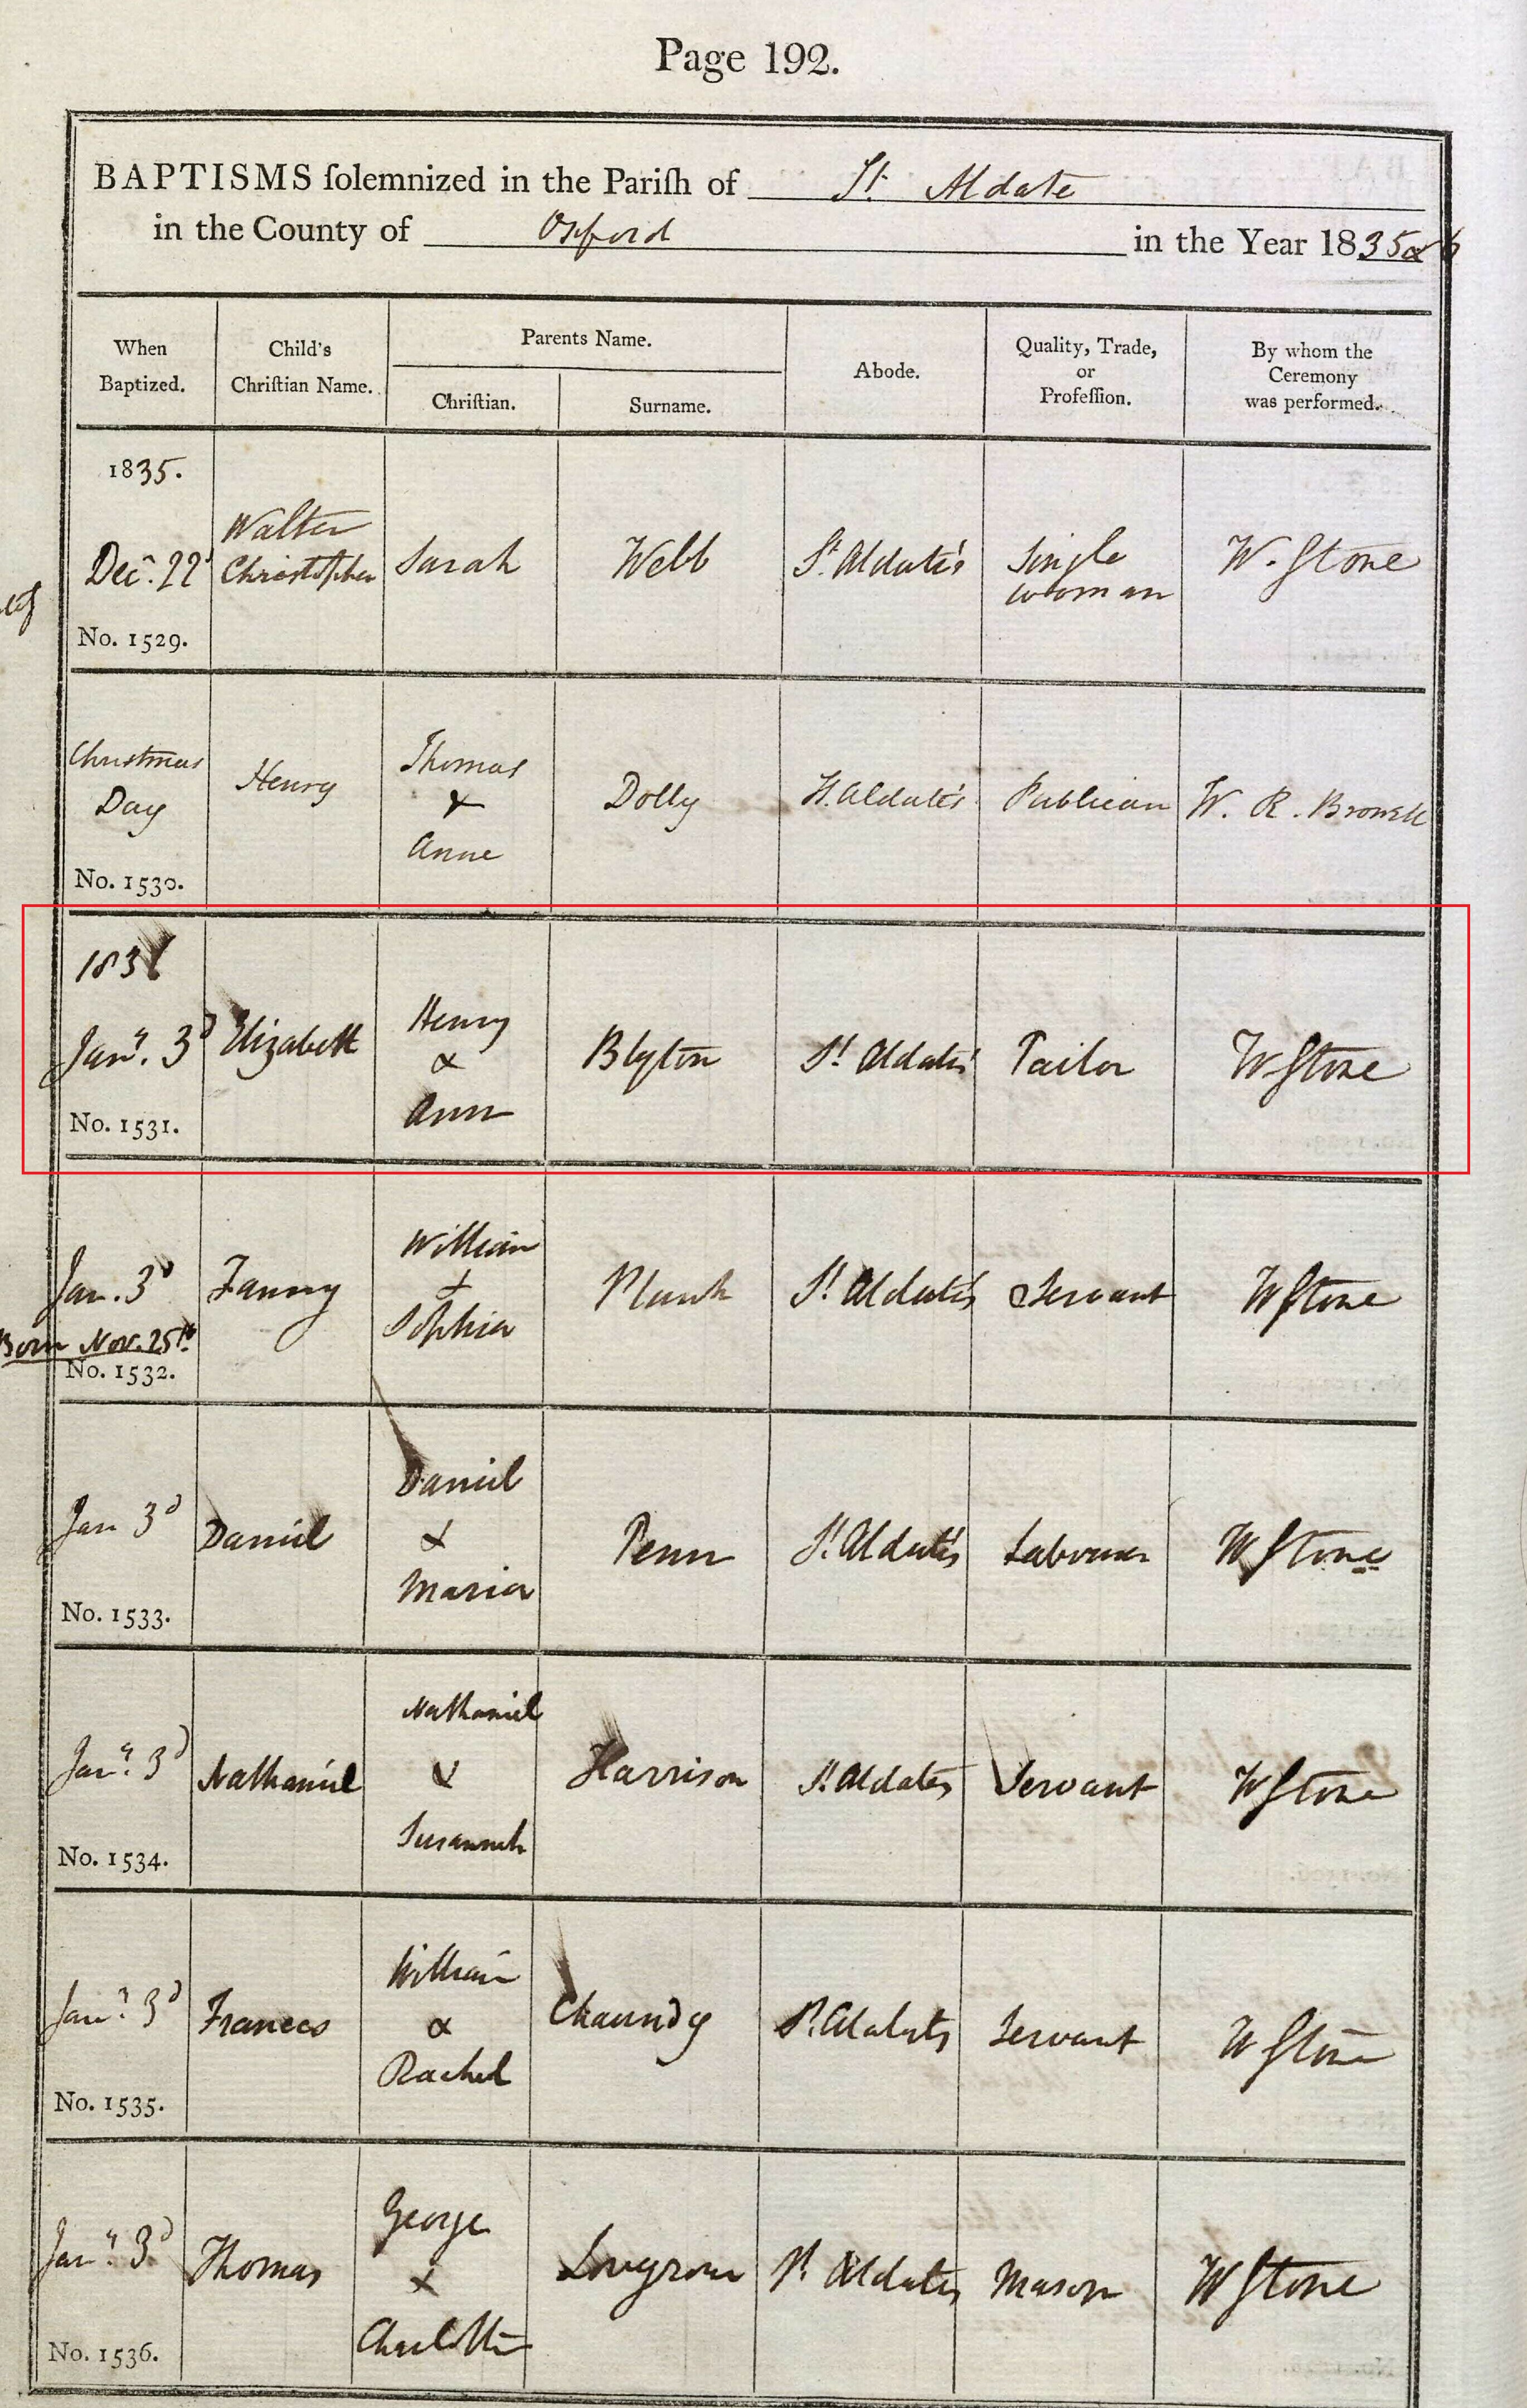 Page 192.
BAPTISMS ſolemnized in the Pariſh of St. Aldate
in the County of Oxford in the Year 1835 & 6
When Baptized.
Child's Chriſtian Name.
Parents Name.
Chriſtian.
Surname.
Abode.
Quality, Trade, or Profeſſion.
By whom the Ceremony was performed.
1835.
Walter
Decr. 22d Christopher Sarah Webb St. Aldate's Single W. Stone
woman
No. 1529.
Christmas Thomas
Day Henry & Dolly St. Aldate's Publican W. R. Browell
Anne
No. 1530.
1836
Henry
Jany. 3d Elizabeth & Blyton St. Aldate's Tailor W Stone
Ann
No. 1531.
William
Jan. 3d Fanny & Plank St. Aldate's Servant W Stone
Sophia
Born Nov. 25th.
No. 1532.
Daniel
Jan 3d Daniel & Penn St. Aldate's Labourer W Stone
Maria
No. 1533.
Nathaniel
Jany. 3d Nathaniel & Harrison St. Aldates Servant W Stone
Susannah
No. 1534.
William
Jany. 3d Frances & Chaundy St. Aldates Servant W Stone
Rachel
No. 1535.
George
Jany. 3d Thomas & Lovegrove St. Aldates Mason W Stone
Charlotte
No. 1536.